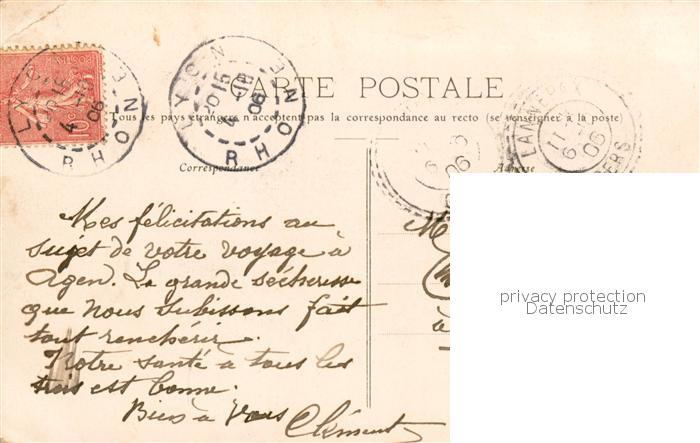 CARTE POSTALE
Tous les pays étrangers n'acceptent pas la correspondance au recto (se renseigner à la poste)
Correspondance
LYON
RHONE
15
4
06
LYON
RHONE
15
4
06
06
11
6
06
GERS
Mes félicitations au
sujet de votre voyage à
Agen. La grande sécheresse
que nous subissons fait
tout renchérir.
Notre santé à tous les
trois est bonne.
Bien à Vous Clément
M
à
privacy protection
Datenschutz